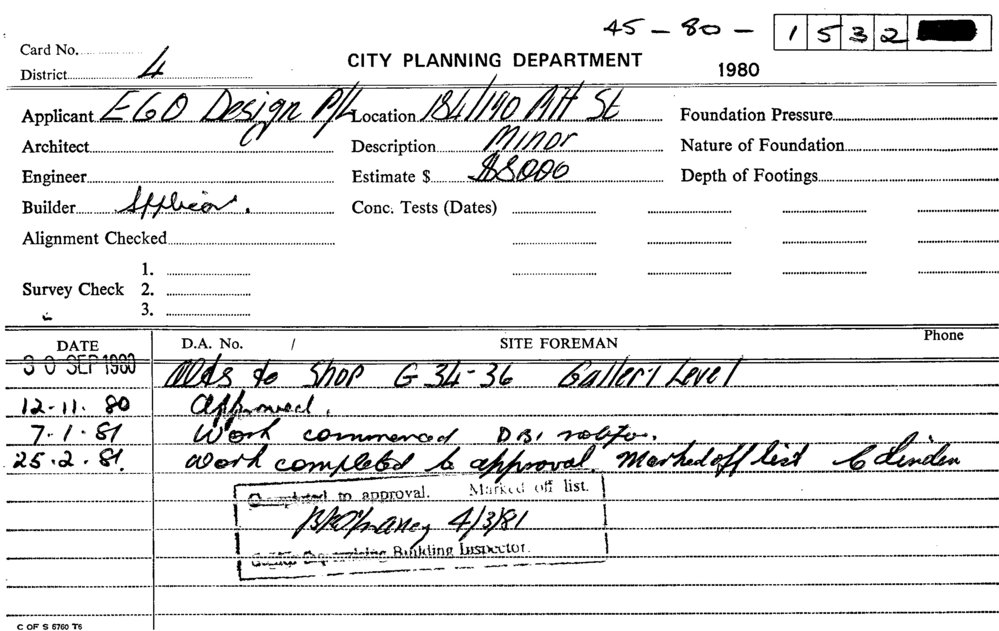 45 - 80 - 1532
Card No.
CITY PLANNING DEPARTMENT
1980
District 4
Applicant EGO Design P/L Location 184/190 Pitt St Foundation Pressure
Architect Description Minor Nature of Foundation
Engineer Estimate $ $8000 Depth of Footings
Builder Conc. Tests (Dates)
Alignment Checked
1.
Survey Check 2.
3.
DATE D.A. No. / SITE FOREMAN Phone
30 SEP 1980 Alds to Shop G 34-36 Gallery Level
12-11-80 Approved.
7-1-81 Work commenced
25-2-81. Work completed to approval. Marked off list
Completed to approval. Marked off list.
4/3/81
Building Inspector.
C OF S 5760 T6